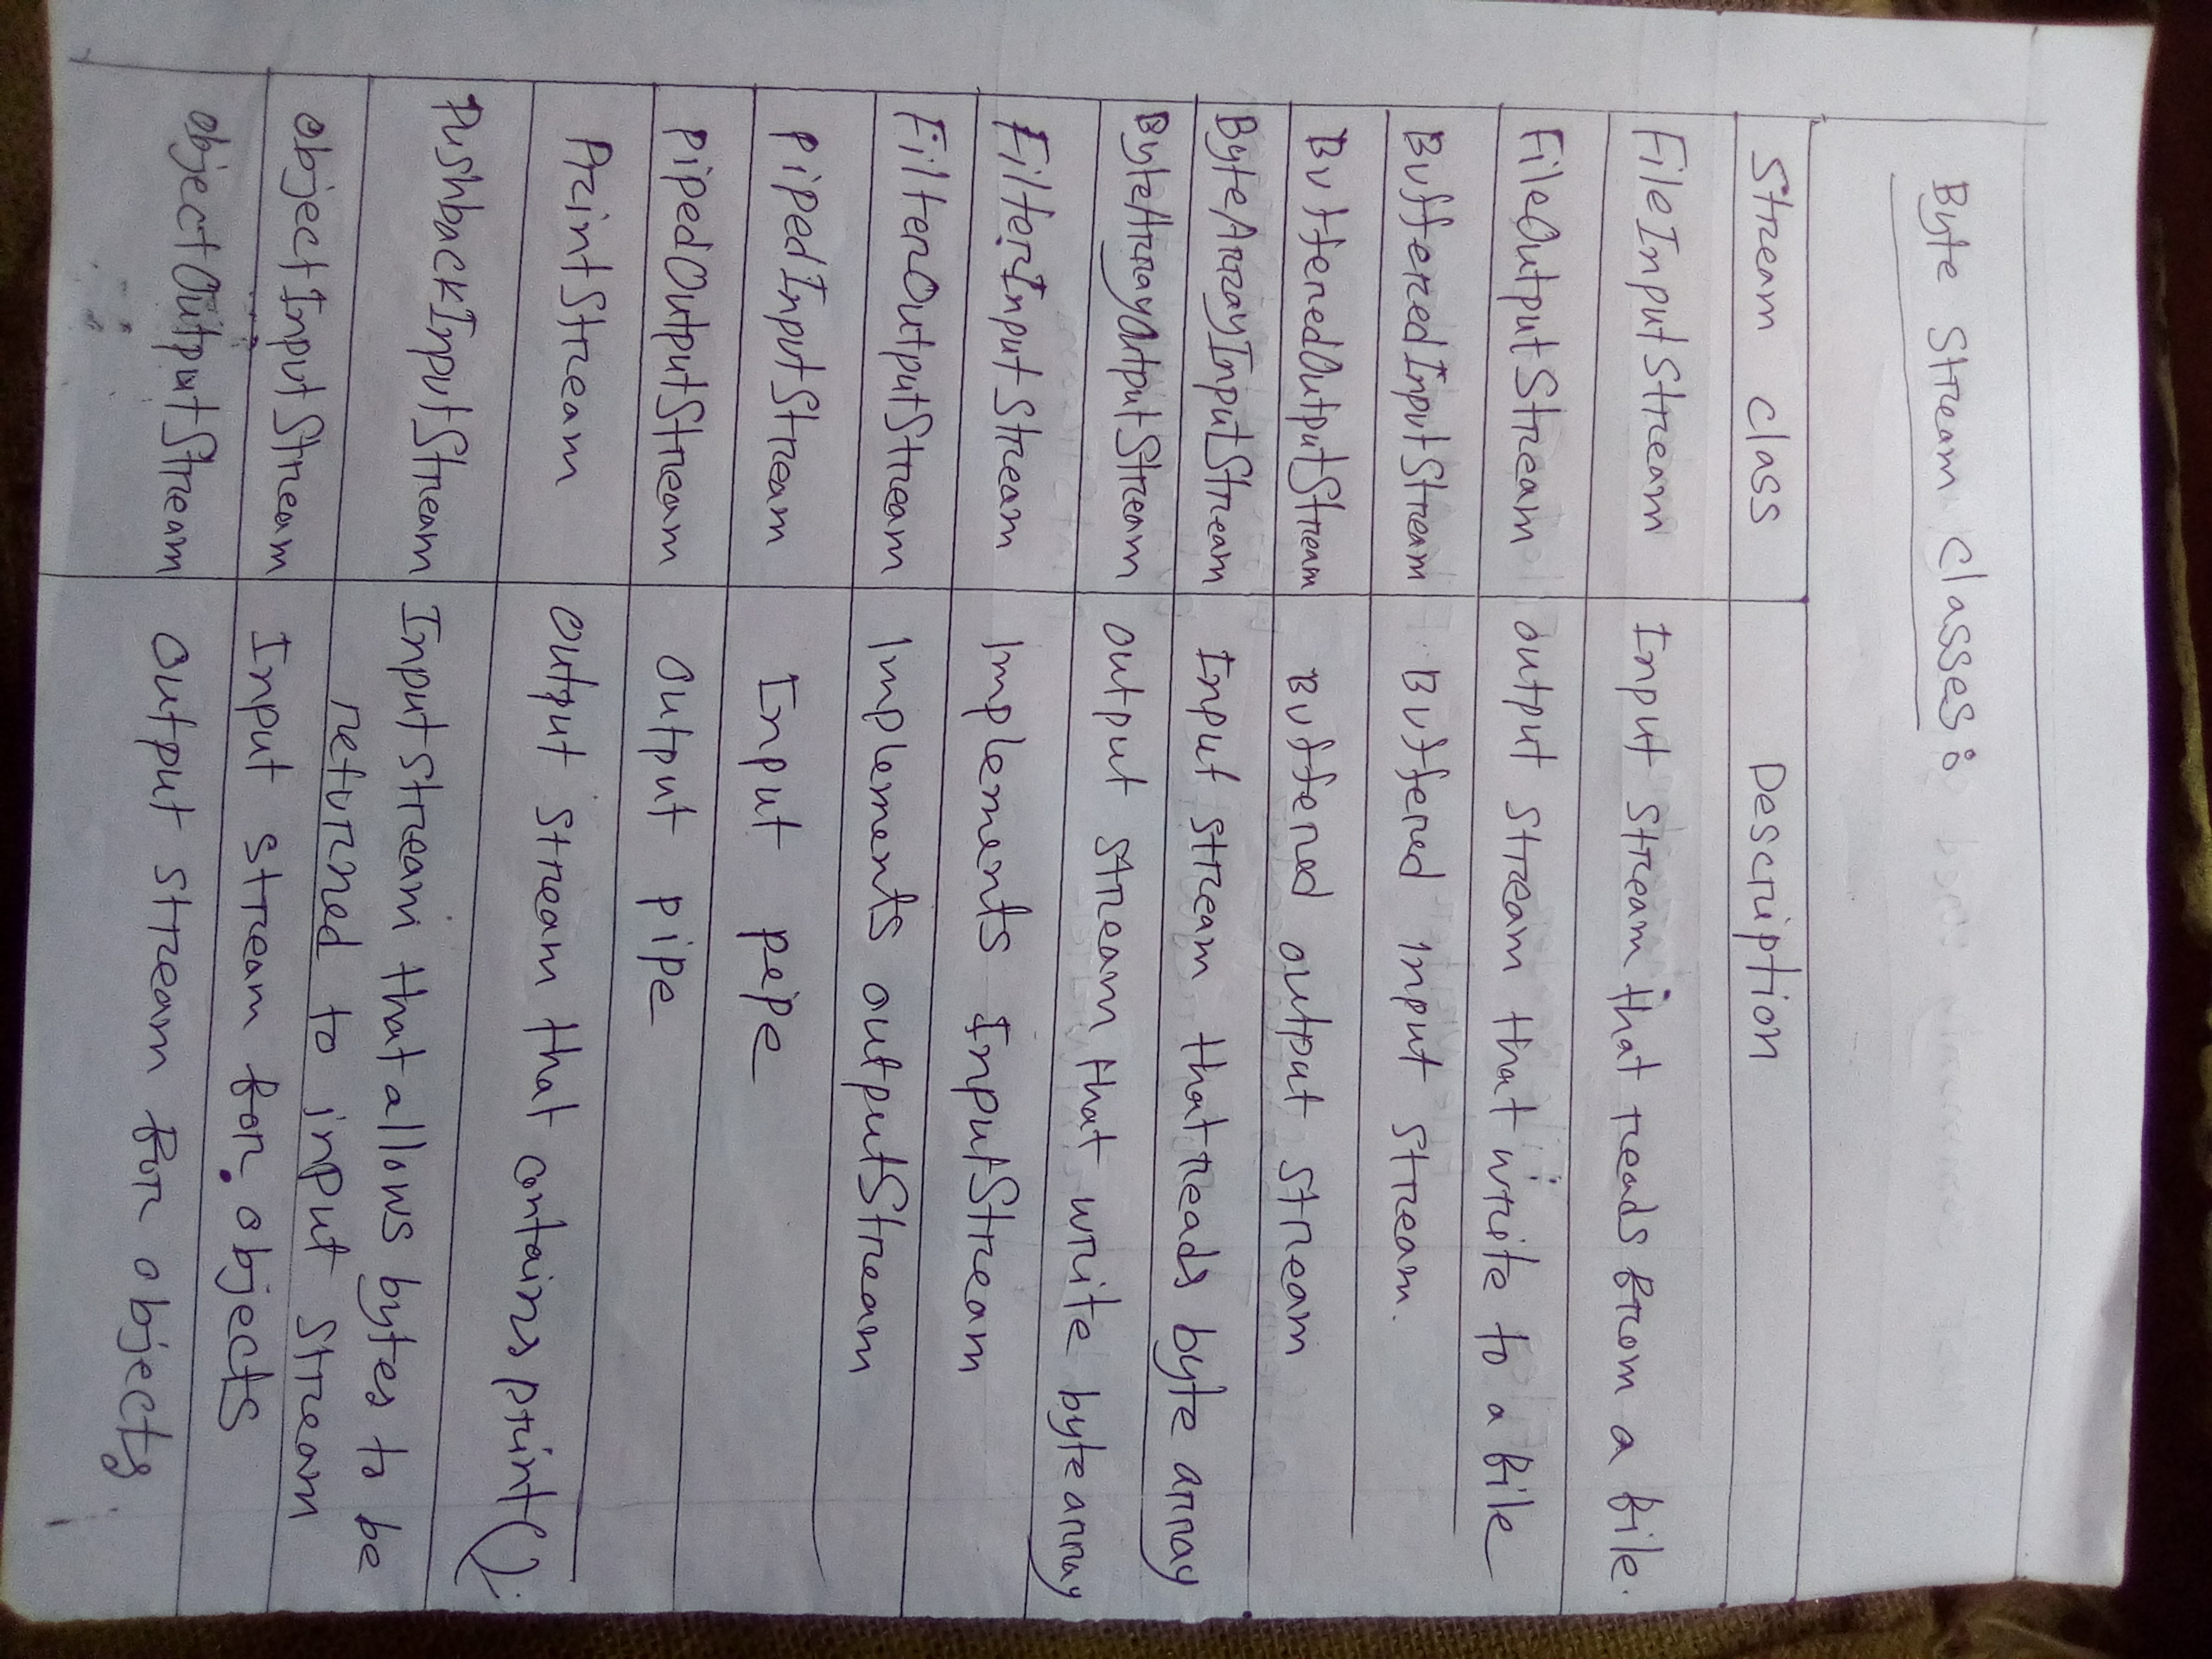 Byte Stream Classes:
Stream class Description
FileInputStream Input stream that reads from a file.
FileOutputStream output stream that write to a file
BufferedInputStream Buffered input stream.
BufferedOutputStream Buffered output stream
ByteArrayInputStream Input stream that reads byte array
ByteArrayOutputStream output stream that write byte array
FilterInputStream Implements InputStream
FilterOutputStream Implements outputStream
pipedInputStream Input pipe
pipedOutputStream Output pipe
PrintStream Output stream that contains print().
PushbackInputStream Input stream that allows bytes to be
returned to input stream
objectInputStream Input stream for objects
objectOutputStream Output stream for objects.